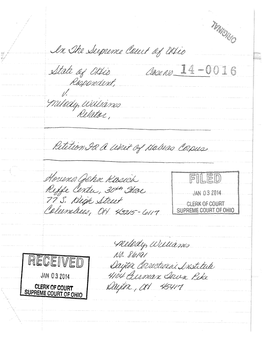 ORIGINAL
In The Supreme Court of Ohio
State of Ohio Case No. 14-0016
Respondent,
v.
Melody Williams
Relator,
Petition For A Writ of Habeas Corpus
Riffe Center, 30th Floor
77 S. High Street
Columbus, OH 43215-6117
FILED
JAN 03 2014
CLERK OF COURT
SUPREME COURT OF OHIO
Melody Williams
No.
Dayton Correctional Institute
4104 Germantown Pike
Dayton, OH 45417
RECEIVED
JAN 03 2014
CLERK OF COURT
SUPREME COURT OF OHIO